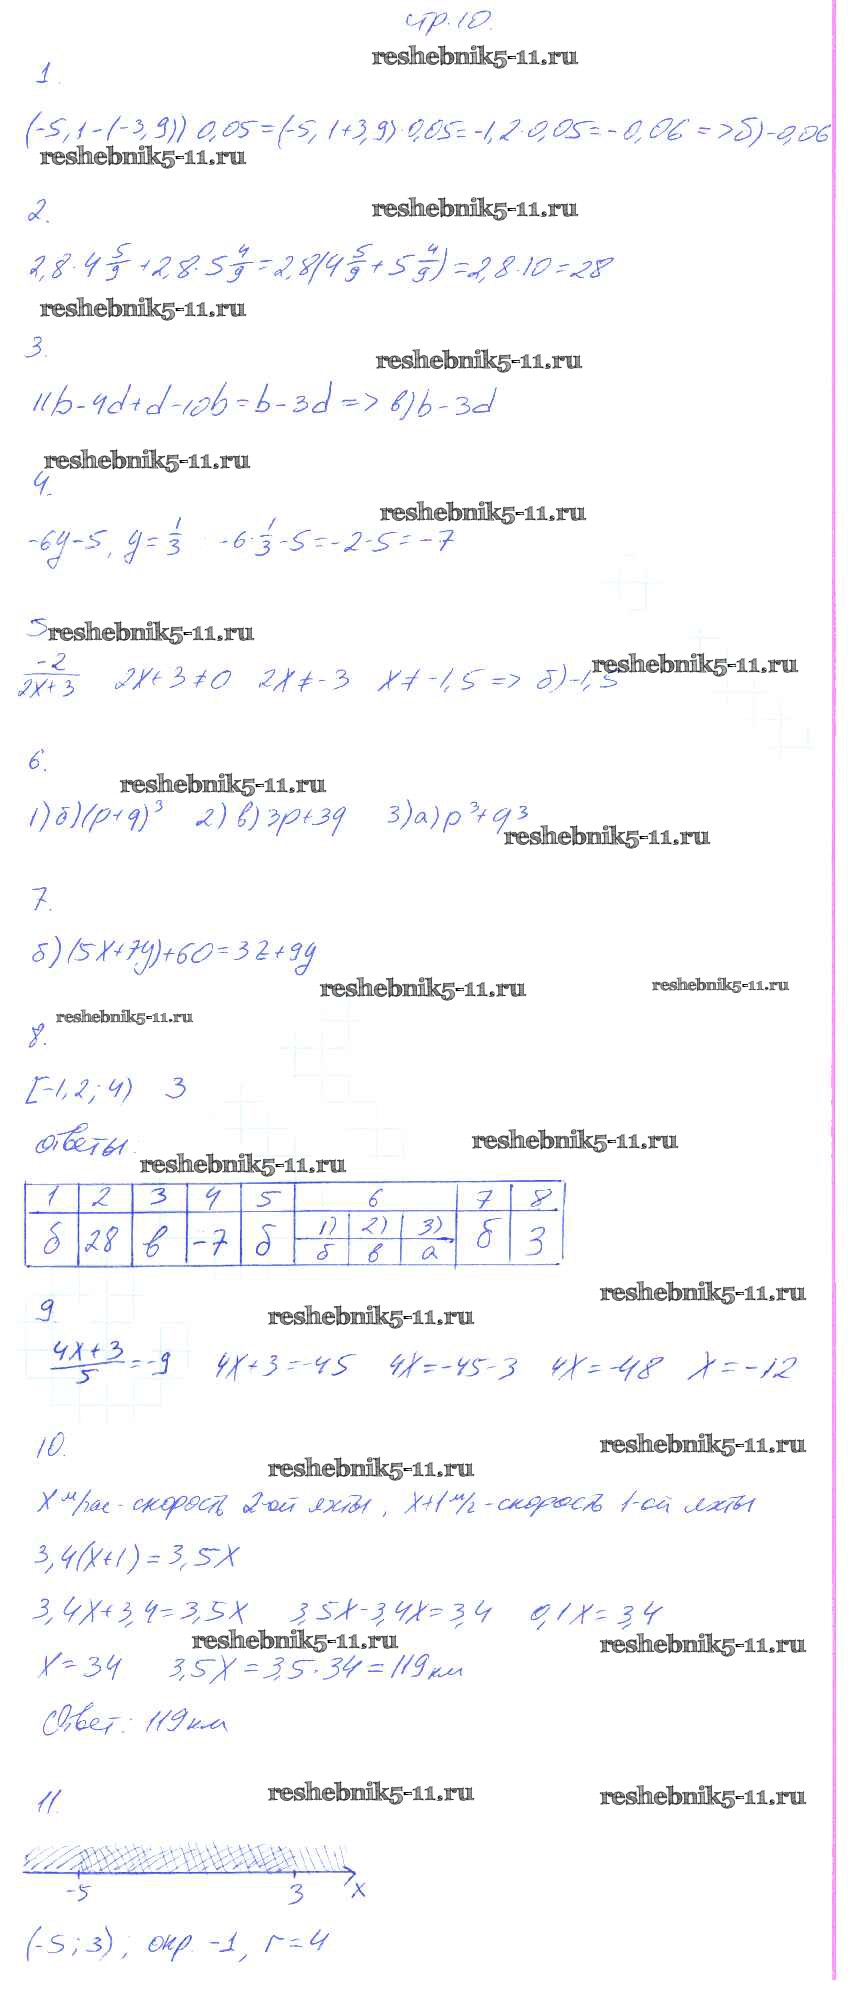 стр.10.
reshebnik5-11.ru
1.
(-5,1-(-3,9)) 0,05=(-5,1+3,9)·0,05=-1,2·0,05=-0,06=>б)-0,06
reshebnik5-11.ru
reshebnik5-11.ru
2.
2,8·4 5/9+2,8·5 4/9=2,8(4 5/9+5 4/9)=2,8·10=28
reshebnik5-11.ru
3.
reshebnik5-11.ru
11b-4d+d-10b=b-3d=>в)b-3d
reshebnik5-11.ru
4.
reshebnik5-11.ru
-6y-5, y=1/3 -6·1/3-5=-2-5=-7
5
reshebnik5-11.ru
reshebnik5-11.ru
-2/2x+3 2x+3≠0 2x≠-3 x≠-1,5=>б)-1,5
6.
reshebnik5-11.ru
1)б)(p+q)³ 2)в)3p+3q 3)а)p³+q³
reshebnik5-11.ru
7.
б)(5x+7y)+60=3z+9y
reshebnik5-11.ru
reshebnik5-11.ru
reshebnik5-11.ru
8.
[-1,2;4) 3
ответы:
reshebnik5-11.ru
reshebnik5-11.ru
1 2 3 4 5 6 7 8
б 28 в -7 б 1) 2) 3) б 3
б в а
reshebnik5-11.ru
9.
reshebnik5-11.ru
4x+3/5=-9 4x+3=-45 4x=-45-3 4x=-48 x=-12
10.
reshebnik5-11.ru
reshebnik5-11.ru
x м/час-скорость 2-ой яхты, x+1 м/г-скорость 1-ой яхты
3,4(x+1)=3,5x
3,4x+3,4=3,5x 3,5x-3,4x=3,4 0,1x=3,4
reshebnik5-11.ru
reshebnik5-11.ru
x=34 3,5x=3,5·34=119км
Ответ: 119км
reshebnik5-11.ru
reshebnik5-11.ru
11.
-5 3 x
(-5;3); окр. -1, r=4